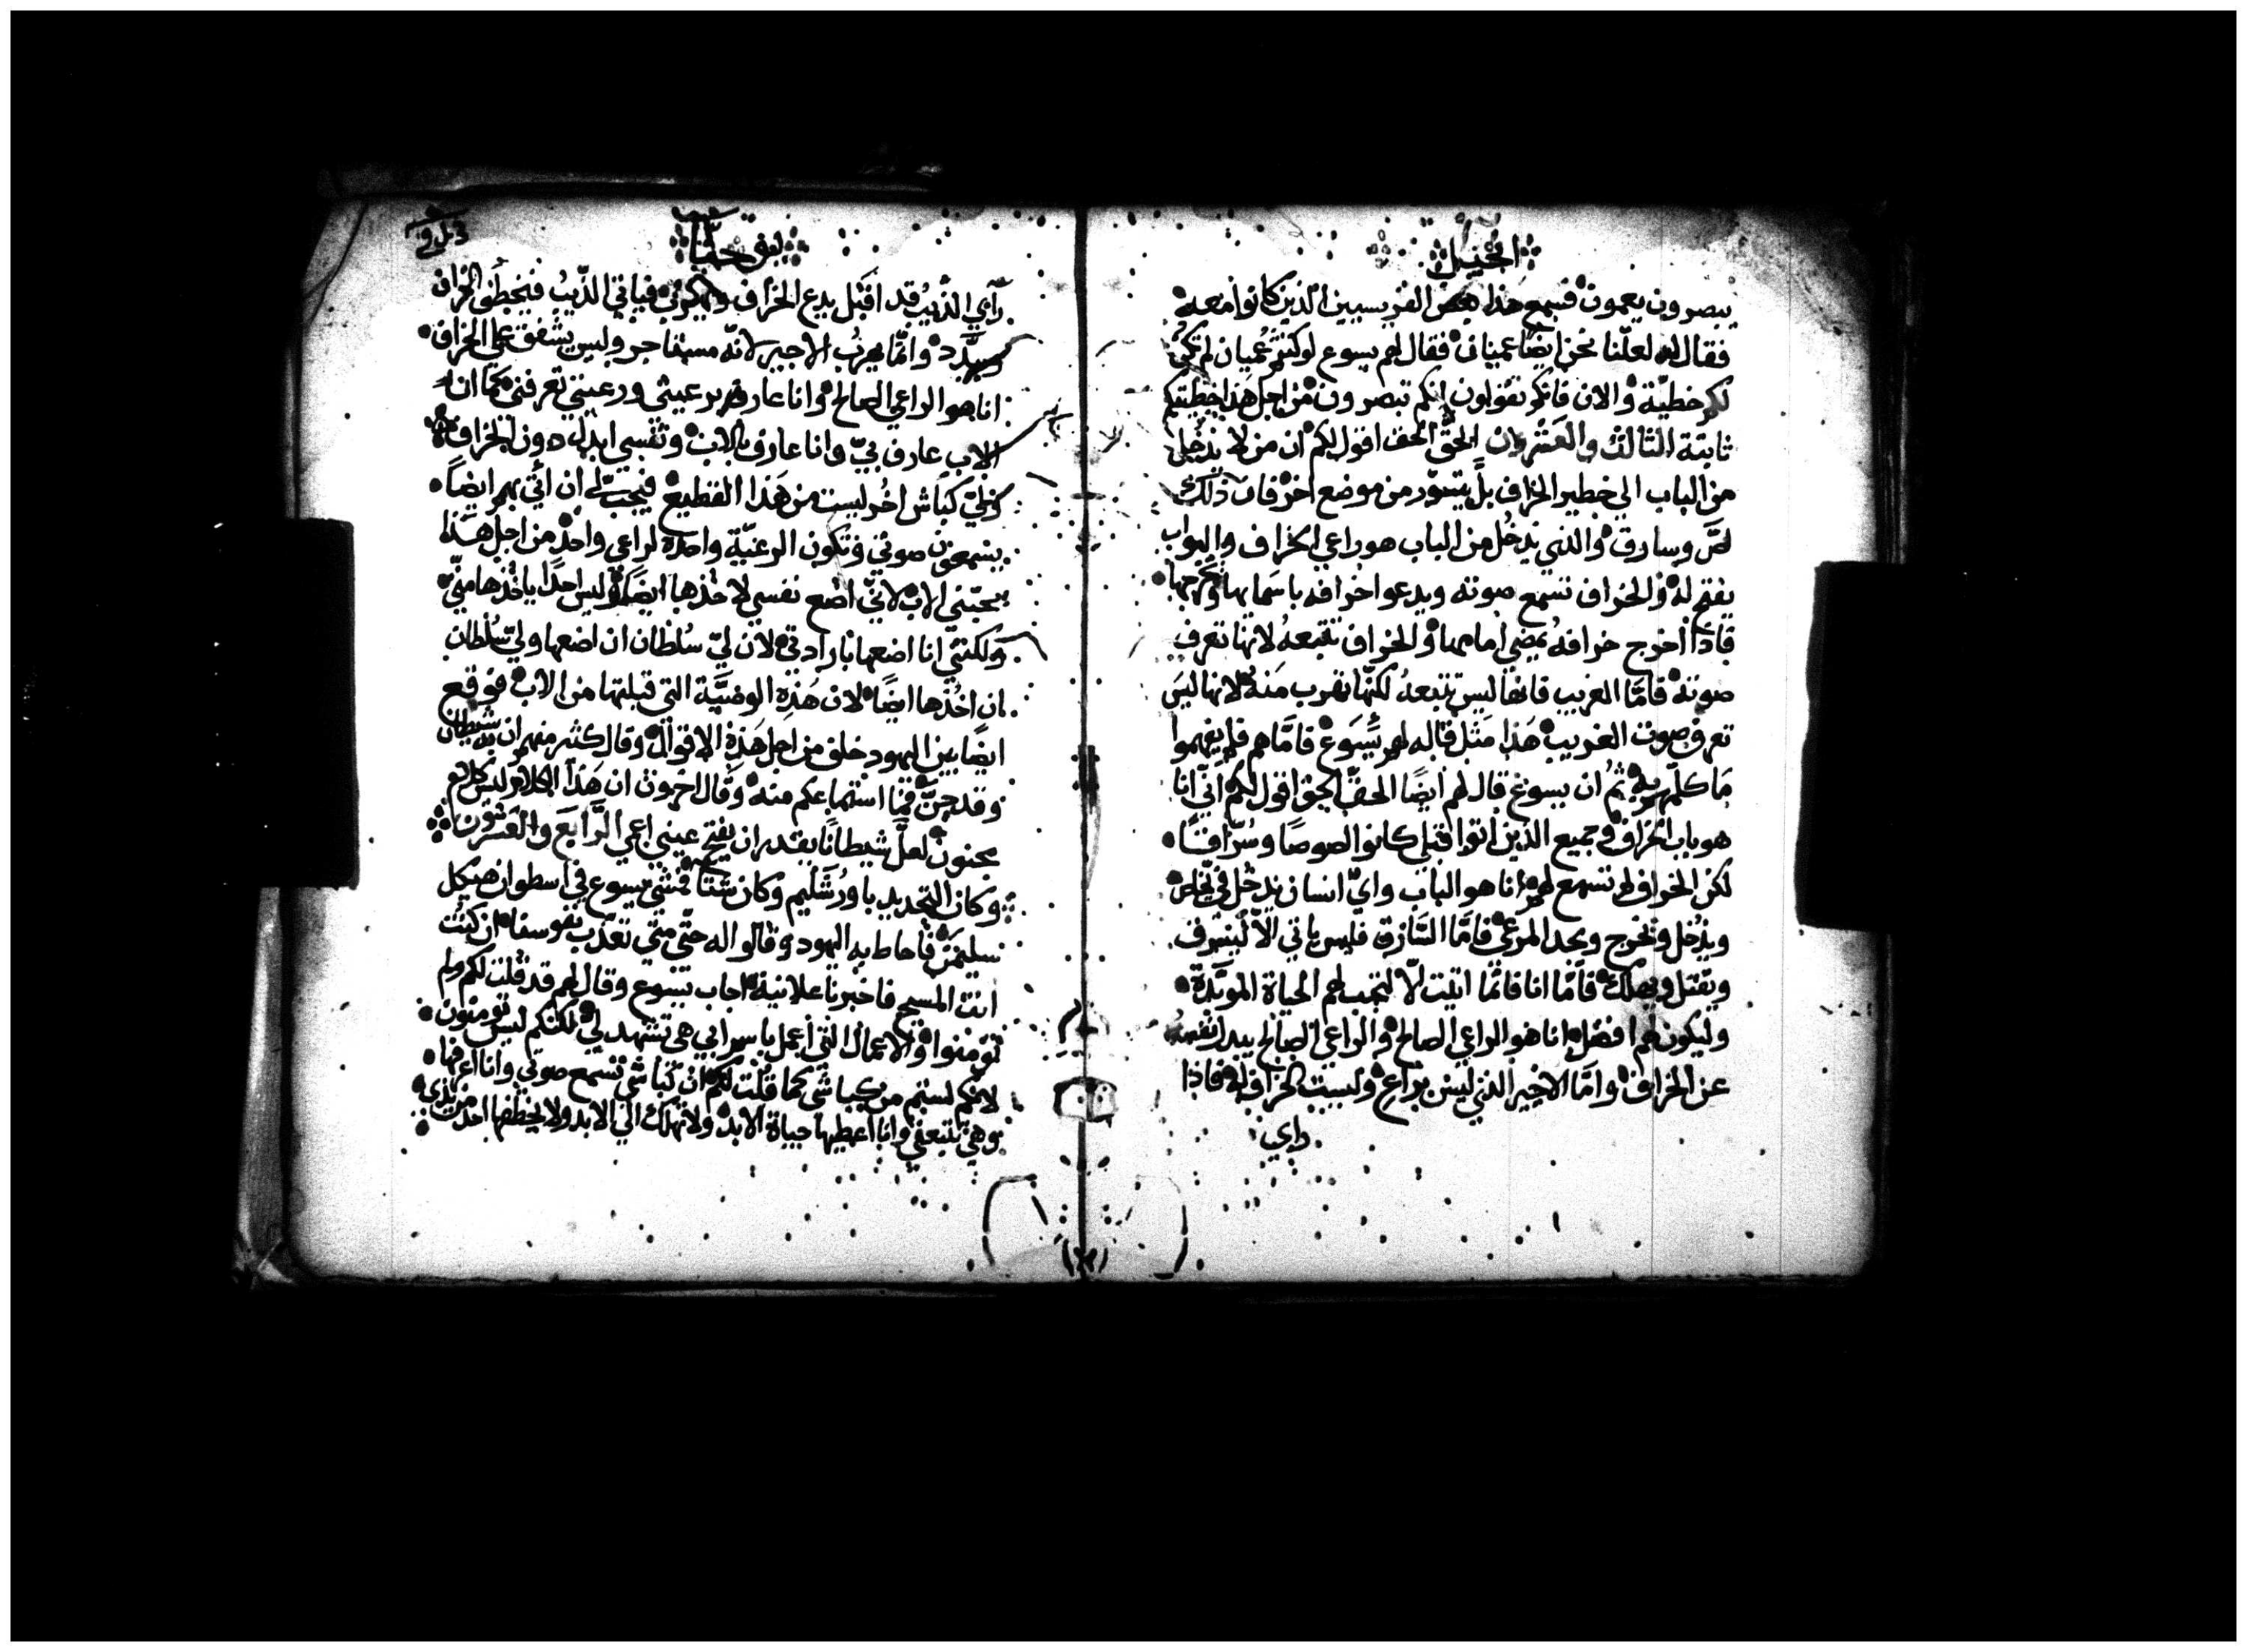 انجيل
يبصرون يعمون فسمع هذا بعض الفريسيين الذين كانوا معه
فقال له لعلنا نحن ايضًا عميان فقال لهم يسوع لو كنتم عميان لم تكن
لكم خطيّة والان فانكم تقولون انكم تبصرون من اجل هذا خطيتكم
ثابتة الثالث والعشرون الحقّ الحق اقول لكم ان من لا يدخل
من الباب الي حظير الخراف بل يتسوّر من موضع اخر فان ذلك
لصّ وسارق والذي يدخل من الباب هو راعي الخراف والبواب
يفتح له والخراف تسمع صوته ويدعوا خرافه باسمايها ويخرجها
فاذا اخرج خرافهُ يمضي امامها والخراف تتبعهُ لانها تعرف
صوته فامّا الغريب فانها ليس تتبعهُ لكنّها تهرب منه لانها ليس
تعرف صوت الغريب هذا مثل قاله لهم يسوع فامّا هم فلم يفهموا
ما كلمهم به ثم ان يسوع قال لهم ايضًا الحقّ الحق اقول لكم انّي انا
هو باب الخراف وجميع الذين اتوا قبلي كانوا لصوصًا وسُرّاقًا
لكن الخراف لم تسمع لهم انا هو الباب وايّ انسان يدخل في يخلص
ويدخل ويخرج ويجد المرعي فامّا السارق فليس ياتي الاّ ليسرق
ويقتل ويهلك فامّا انا فانما اتيت لا لتجب لهم الحياة الموبّدة
وليكون لهم افضل انا هو الراعي الصالح والراعي الصالح يبدل نفسهُ
عن الخراف وامّا الاجير الذي ليس براعٍ وليست الخراف له فاذا
راي
يوحنّا
رآي الذيب قد اقبل يدع الخراف ويهرب فياتي الذّيبُ فيخطف الخراف
ويبدّد وانّما يهرُب الاجير لانّه مستاجر وليس يشفق علي الخراف
انا هو الراعي الصالح وانا عارف برعيتي ورعيتي تعرفني كما ان
الاب عارف بيّ وانا عارف بالاب ونفسي ابدل دون الخراف
وليّ كباش اخُر ليست من هذا القطيع فيجب لي ان اتي بهم ايضًا
يسمعون صوتي وتكون الرعيّة واحدة لراعي واحد من اجل هذا
يحبّني الاب لانّي اضع نفسي لاخذها ايضًا وليس احدًا ياخذها منّي
ولكنّي انا اضعها بارادتي لان ليّ سُلطان ان اضعها وليّ سُلطان
ان اخُذها ايضًا لان هذِه الوصيّة التي قبلتها من الاب فوقع
ايضًا بين اليهود خلف من اجل هذِه الاقوال وقال كثير منهم ان به شيطان
وقد جنّ فما استماعكم منه وقال اخرون ان هذا الكلام ليس كلام
مجنون لعلّ شيطانًا يقدر ان يفتح عيني اعمي الرّابع والعشرون
وكان التجديد باورُشليم وكان شتا فمشي يسوع في اسطوان هيكل
سليمن فاحاط به اليهود وقالوا له حتّي متي تعذّب نفوسنا ان كنتُ
انت المسيح فاخبرنا علانية اجاب يسوع وقال لهم قد قلت لكم ولم
تومنوا والاعمال التي اعمل باسم ابي هي تشهد لي لكنكم ليس تومنون
لانكم لستم من كباشي كما قُلت لكم ان كباشي تسمع صوتي وانا اعرفها
وهي تتبعني وانا اعطيها حياة الابد ولا تهلك الي الابد ولا يخطفها احد من يدي